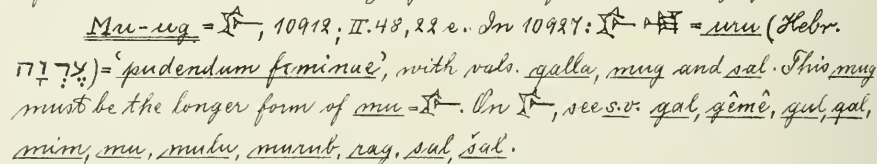 Mu-ug = 𒊩, 10912; II. 48, 22 e. In 10927: 𒊩 𒆷 = uru (Hebr.
עֶרְוָה) = ‘pudendum feminae’, with vals. galla, mug and sal. This mug
must be the longer form of mu = 𒊩. On 𒊩, see s.v. gal, gêmê, gul, qal,
mim, mu, mulu, murub, rag, sal, šal.